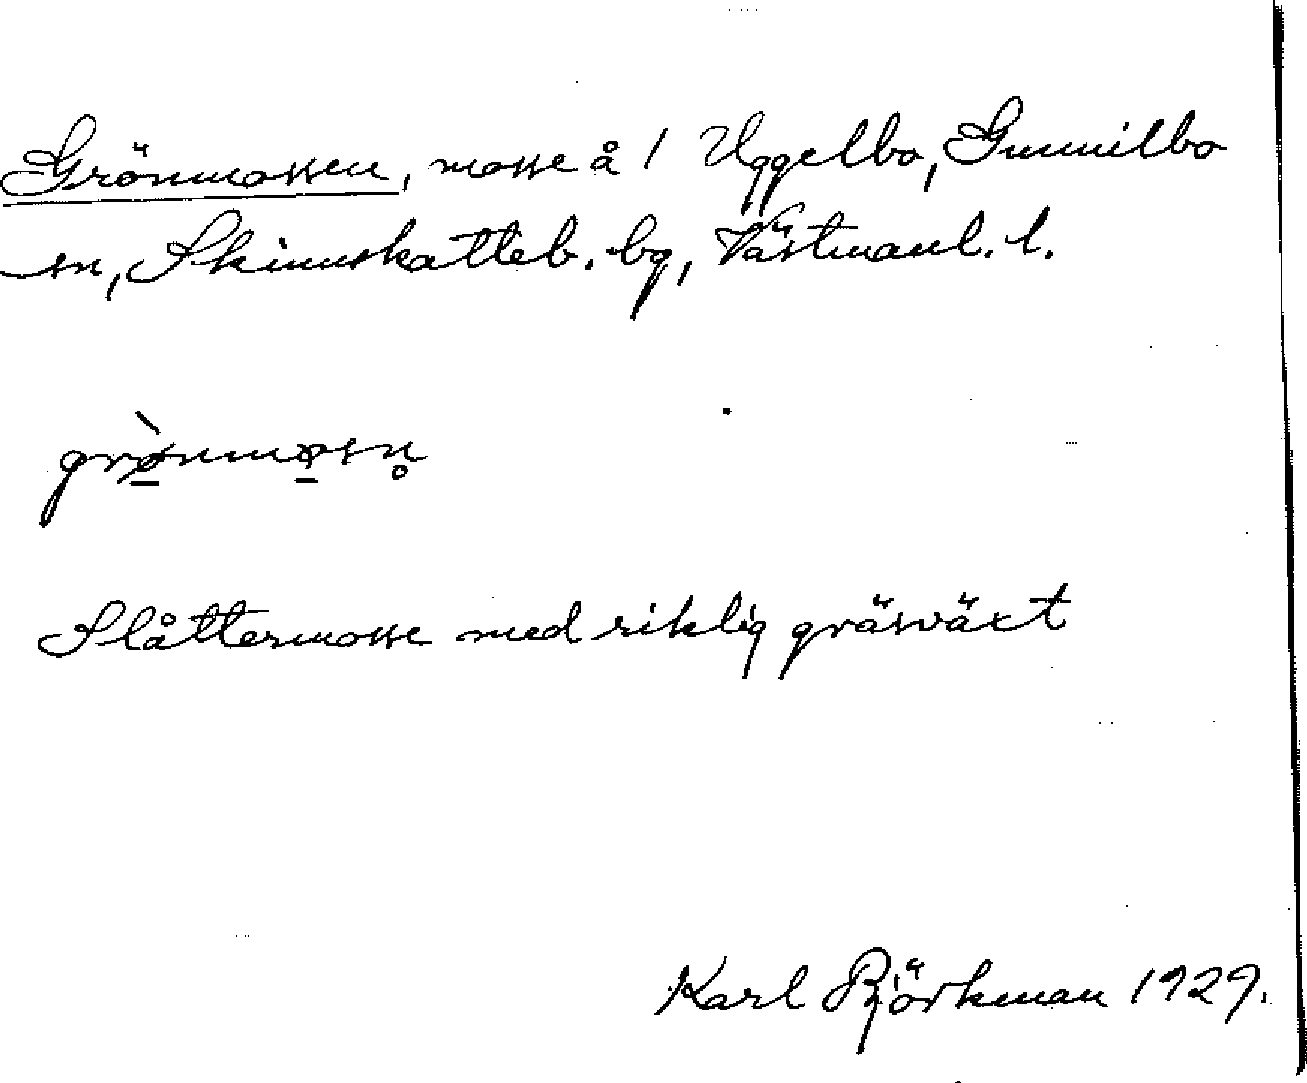 Grönmossen, mosse å 1 Uggelbo, Gunnilbo
sn, Skinnskatteb. bg, Västmanl. l.
grø̀nmosn̥
Slåttermosse med riklig gräsväxt
Karl Björkman 1929.